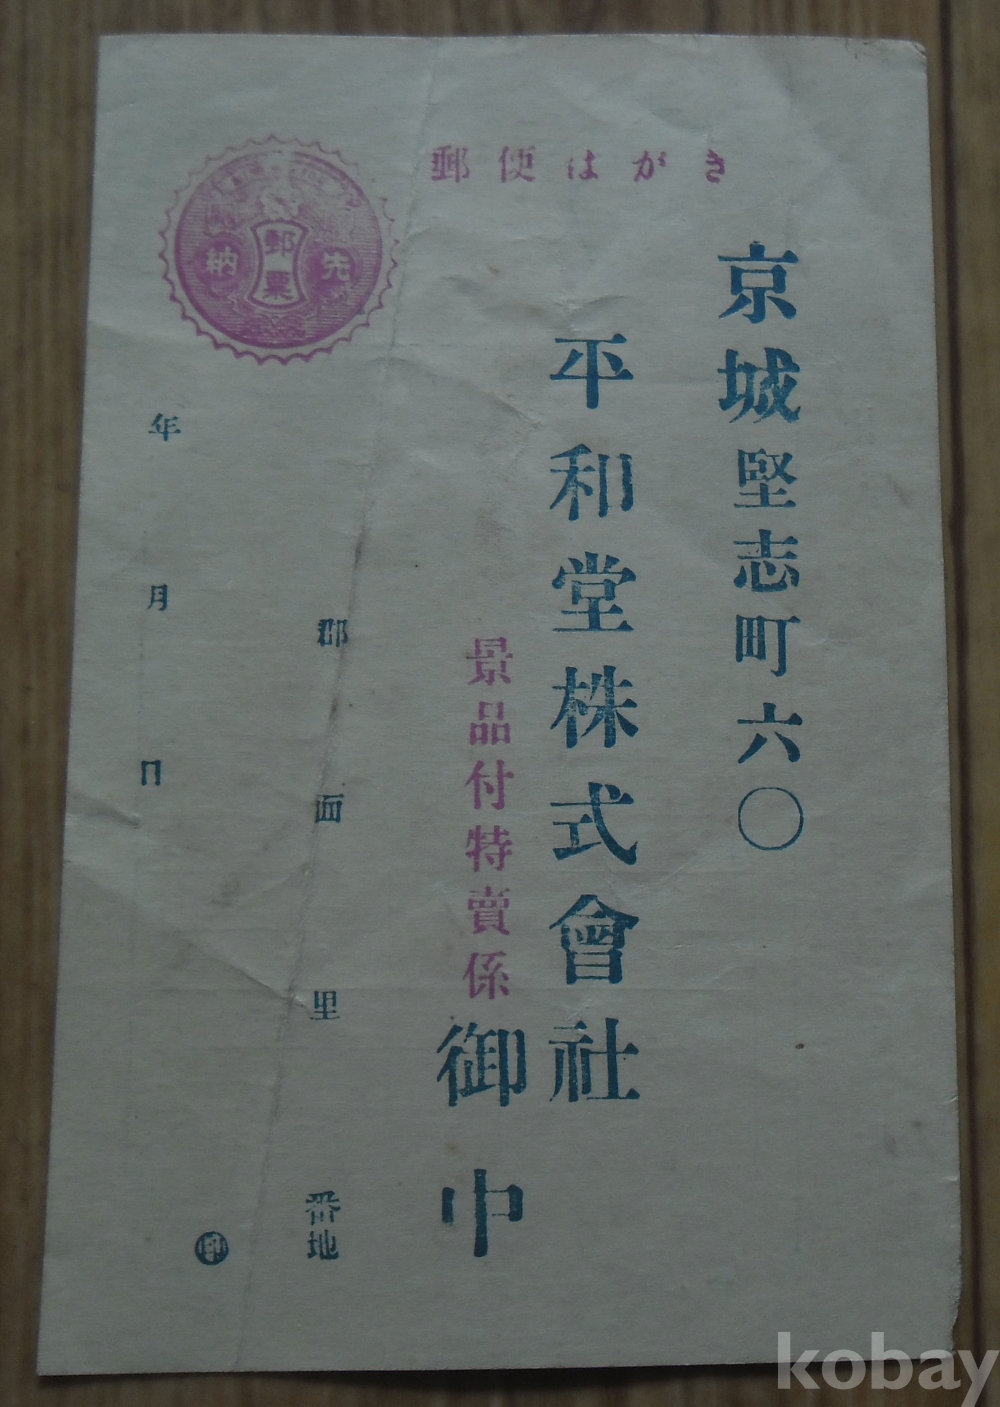 郵便はがき
京城堅志町六〇
平和堂株式會社
景品付特賣係
御中
郵票
先納
郡面里番地
年月日
印
kobay